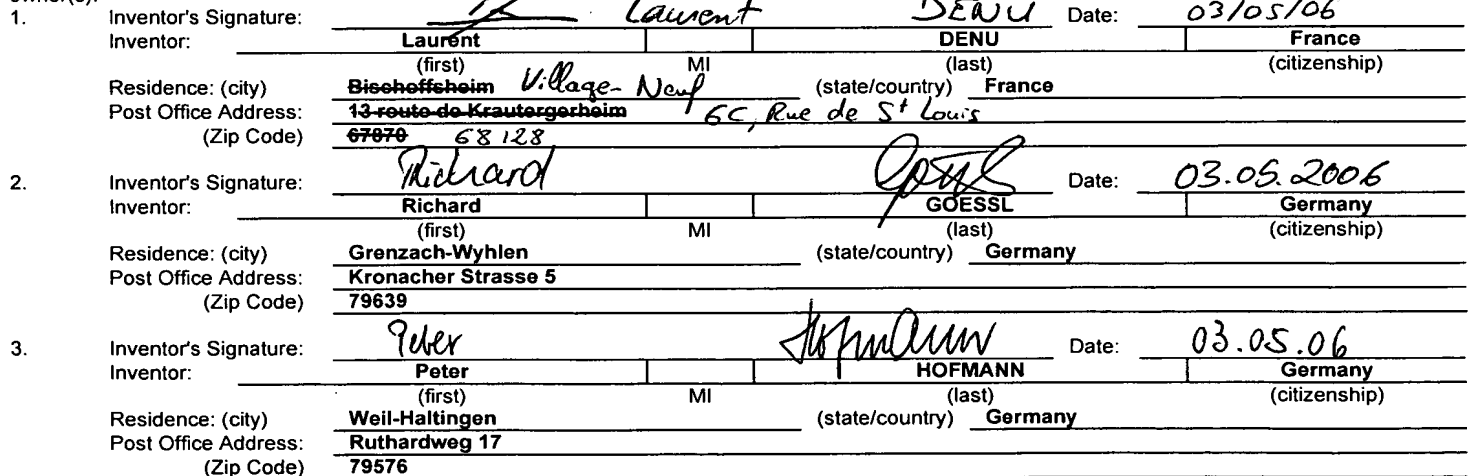 owner(s).
1. Inventor's Signature: Laurent DENU Date: 03/05/06
Inventor: Laurent DENU France
(first) MI (last) (citizenship)
Residence: (city) Bischoffsheim Village-Neuf (state/country) France
Post Office Address: 13 route de Krautergerheim 6C, Rue de St Louis
(Zip Code) 67870 68128
2. Inventor's Signature: Richard Date: 03.05.2006
Inventor: Richard GOESSL Germany
(first) MI (last) (citizenship)
Residence: (city) Grenzach-Wyhlen (state/country) Germany
Post Office Address: Kronacher Strasse 5
(Zip Code) 79639
3. Inventor's Signature: Peter Hofmann Date: 03.05.06
Inventor: Peter HOFMANN Germany
(first) MI (last) (citizenship)
Residence: (city) Weil-Haltingen (state/country) Germany
Post Office Address: Ruthardweg 17
(Zip Code) 79576